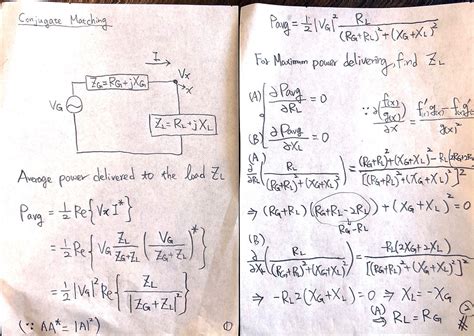 Conjugate Matching
I
Z_G = R_G + jX_G
V_X
X
V_G
Z_L = R_L + jX_L
Average power delivered to the load Z_L
Pavg = 1/2 Re{V_X I*}
= 1/2 Re{V_G Z_L/(Z_G+Z_L) (V_G/(Z_G+Z_L))*}
= 1/2 |V_G|² Re{Z_L/|Z_G+Z_L|²}
(∵ AA* = |A|²)
①
Pavg = 1/2 |V_G|² R_L/((R_G+R_L)²+(X_G+X_L)²)
For Maximum power delivering, find Z_L
(A) ∂Pavg/∂R_L = 0
(B) ∂Pavg/∂X_L = 0
∵ ∂(f(x)/g(x))/∂x = (f'g(x)-f(x)g'(x))/g(x)²
(A) ∂/∂R_L (R_L/((R_G+R_L)²+(X_G+X_L)²)) = ((R_G+R_L)²+(X_G+X_L)²-R_L(2R_G+2R_L))/[(R_G+R_L)²+(X_G+X_L)²]²
⇒ (R_G+R_L)(R_G+R_L-2R_L)+(X_G+X_L)²=0
R_G-R_L
(B) ∂/∂X_L (R_L/((R_G+R_L)²+(X_G+X_L)²)) = -R_L(2X_G+2X_L)/[(R_G+R_L)²+(X_G+X_L)²]²
⇒ -R_L2(X_G+X_L)=0 ⇒ X_L=-X_G
(A) ⇒ R_L=R_G
②